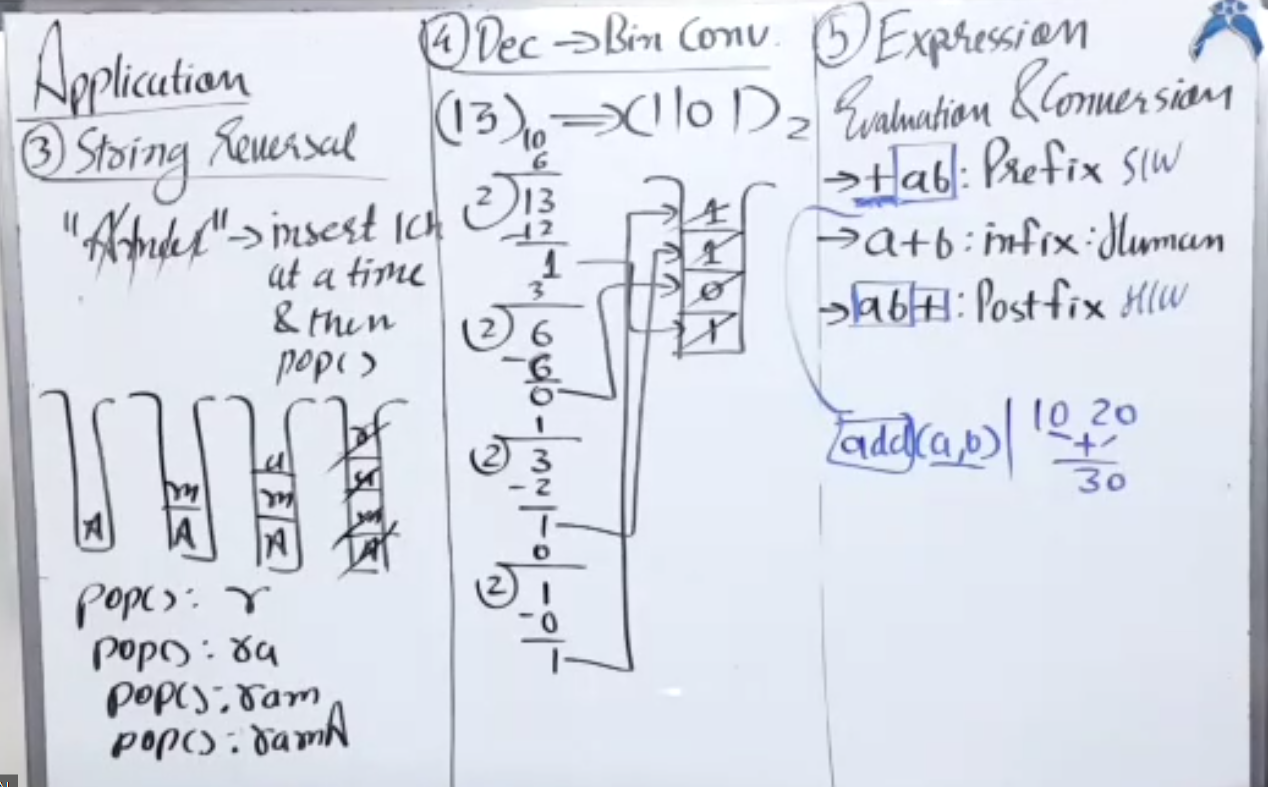 Application
③ String Reversal
→ insert 1ch
at a time
& then
pop()
A
m
A
a
m
A
r
a
m
A
pop(): r
pop(): ra
pop(): ram
pop(): ramA
④ Dec → Bin Conv.
(13)10 ⇒ (1101)2
6
② 13
-12
1
3
② 6
-6
0
1
② 3
-2
1
0
② 1
-0
1
1
1
0
1
⑤ Expression
Evaluation & Conversion
→ +ab : Prefix S/W
→ a+b : infix : Human
→ ab+ : Postfix H/W
add(a,b) | 10 20
+
30